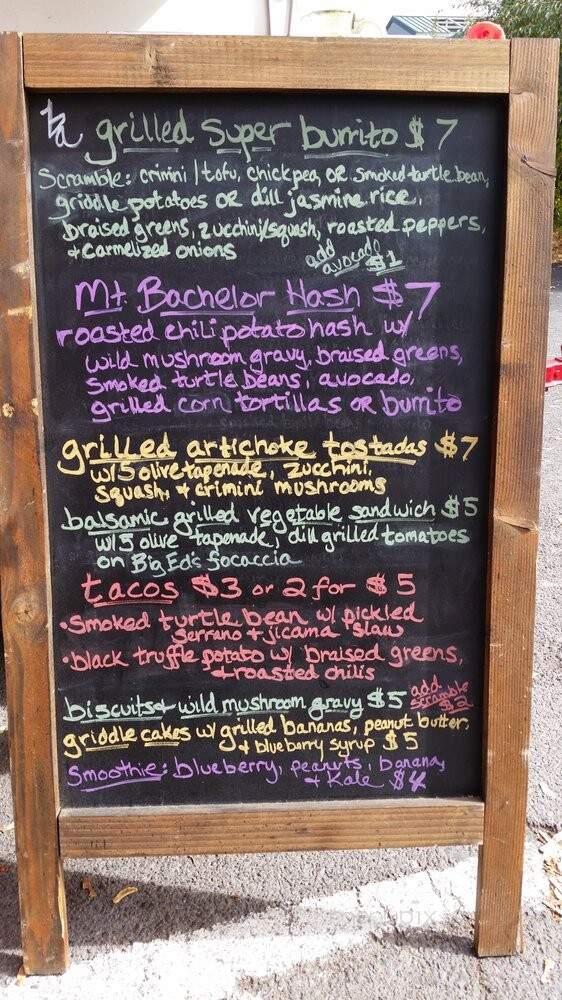 grilled super burrito $7
Scramble: crimini / tofu, chickpea, OR smoked turtle bean,
griddle potatoes OR dill jasmine rice,
braised greens, zucchini/squash, roasted peppers,
+ carmelized onions
add
avocado $1
Mt. Bachelor Hash $7
roasted chili potato hash w/
wild mushroom gravy, braised greens,
smoked turtle beans, avocado,
grilled corn tortillas OR burrito
grilled artichoke tostadas $7
w/ 5 olive tapenade, zucchini,
squash, + crimini mushrooms
balsamic grilled vegetable sandwich $5
w/ 5 olive tapenade, dill grilled tomatoes
on Big Ed's focaccia
tacos $3 or 2 for $5
• smoked turtle bean w/ pickled
serrano + jicama slaw
• black truffle potato w/ braised greens,
+ roasted chilis
biscuits + wild mushroom gravy $5
add
scramble
$2
griddle cakes w/ grilled bananas, peanut butter,
+ blueberry syrup $5
Smoothie: blueberry, peanuts, banana,
+ Kale $4